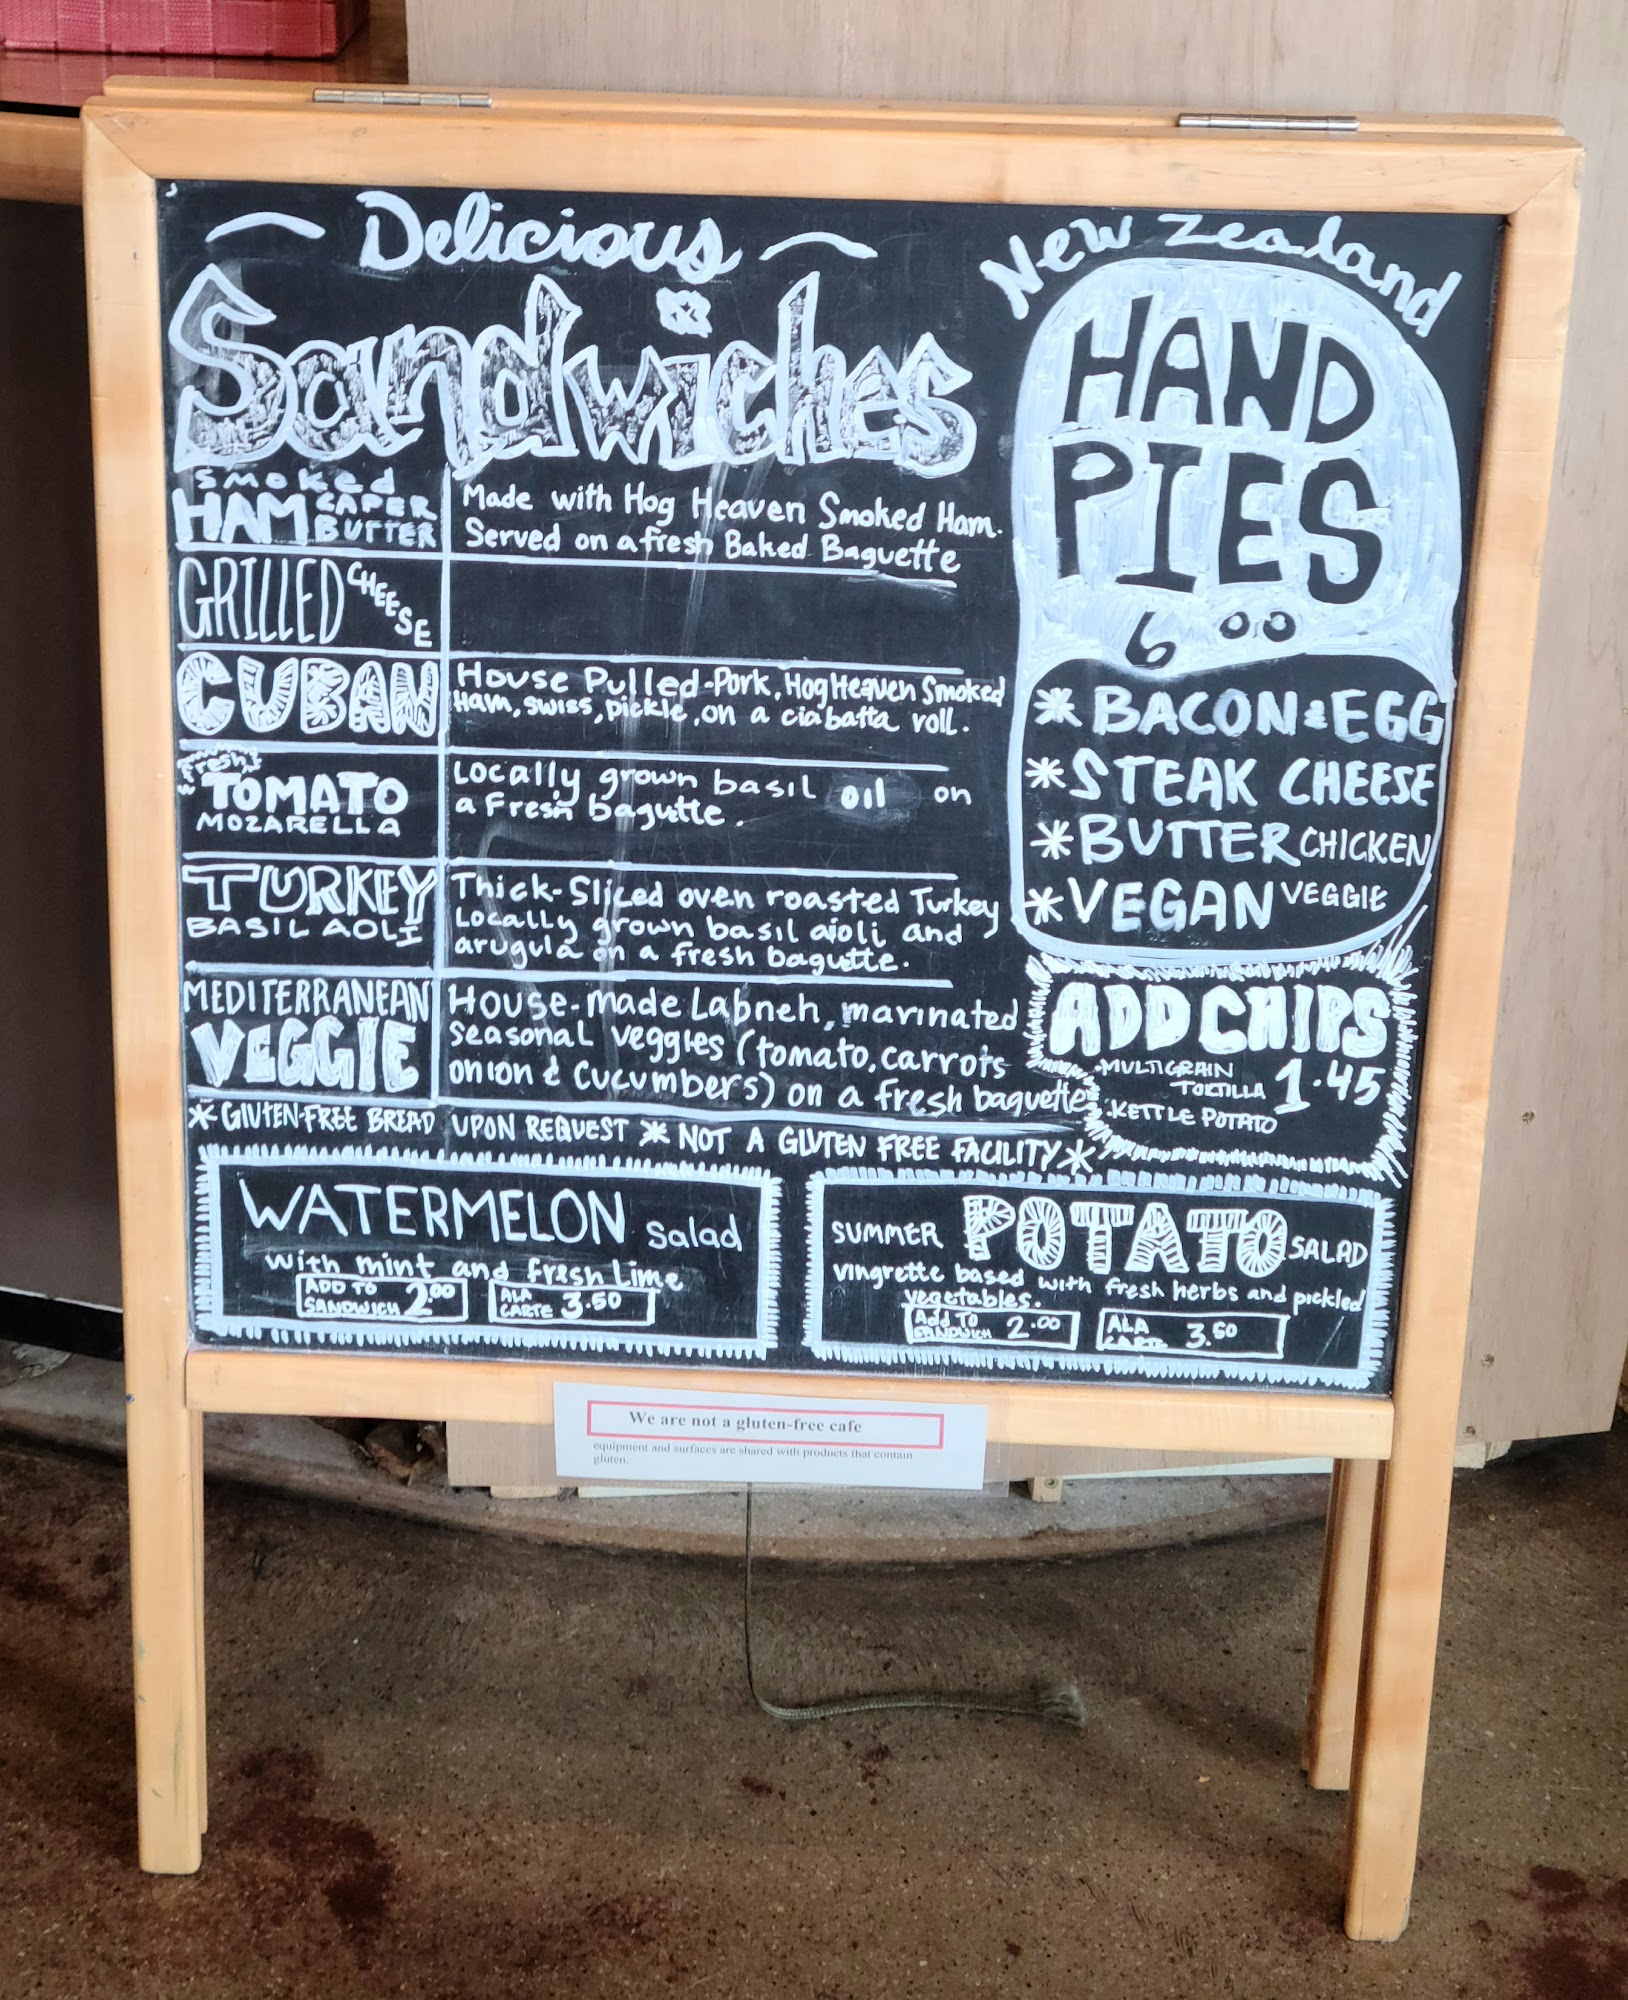 Delicious
Sandwiches
Smoked
HAM CAPER
BUTTER
Made with Hog Heaven Smoked Ham.
Served on a fresh Baked Baguette
GRILLED CHEESE
CUBAN
House Pulled-Pork, Hog Heaven Smoked
Ham, swiss, pickle, on a ciabatta roll.
fresh
TOMATO
MOZARELLA
Locally grown basil oil on
a Fresh bagutte.
TURKEY
BASIL AOLI
Thick-Sliced oven roasted Turkey
Locally grown basil aioli and
arugula on a fresh bagutte.
MEDITERRANEAN
VEGGIE
House-made Labneh, marinated
seasonal veggies (tomato, carrots
onion & cucumbers) on a fresh baguette
*GLUTEN-FREE BREAD UPON REQUEST * NOT A GLUTEN FREE FACILITY*
New Zealand
HAND
PIES
6.00
* BACON & EGG
* STEAK CHEESE
* BUTTER CHICKEN
* VEGAN VEGGIE
ADD CHIPS
.MULTIGRAIN
TORTILLA
1.45
.KETTLE POTATO
WATERMELON Salad
with mint and fresh Lime
ADD TO
SANDWICH 2.00
ALA
CARTE 3.50
SUMMER POTATO SALAD
vingrette based with fresh herbs and pickled
vegetables.
Add TO
SANDWICH 2.00
ALA
CARTE 3.50
We are not a gluten-free cafe
equipment and surfaces are shared with products that contain
gluten.